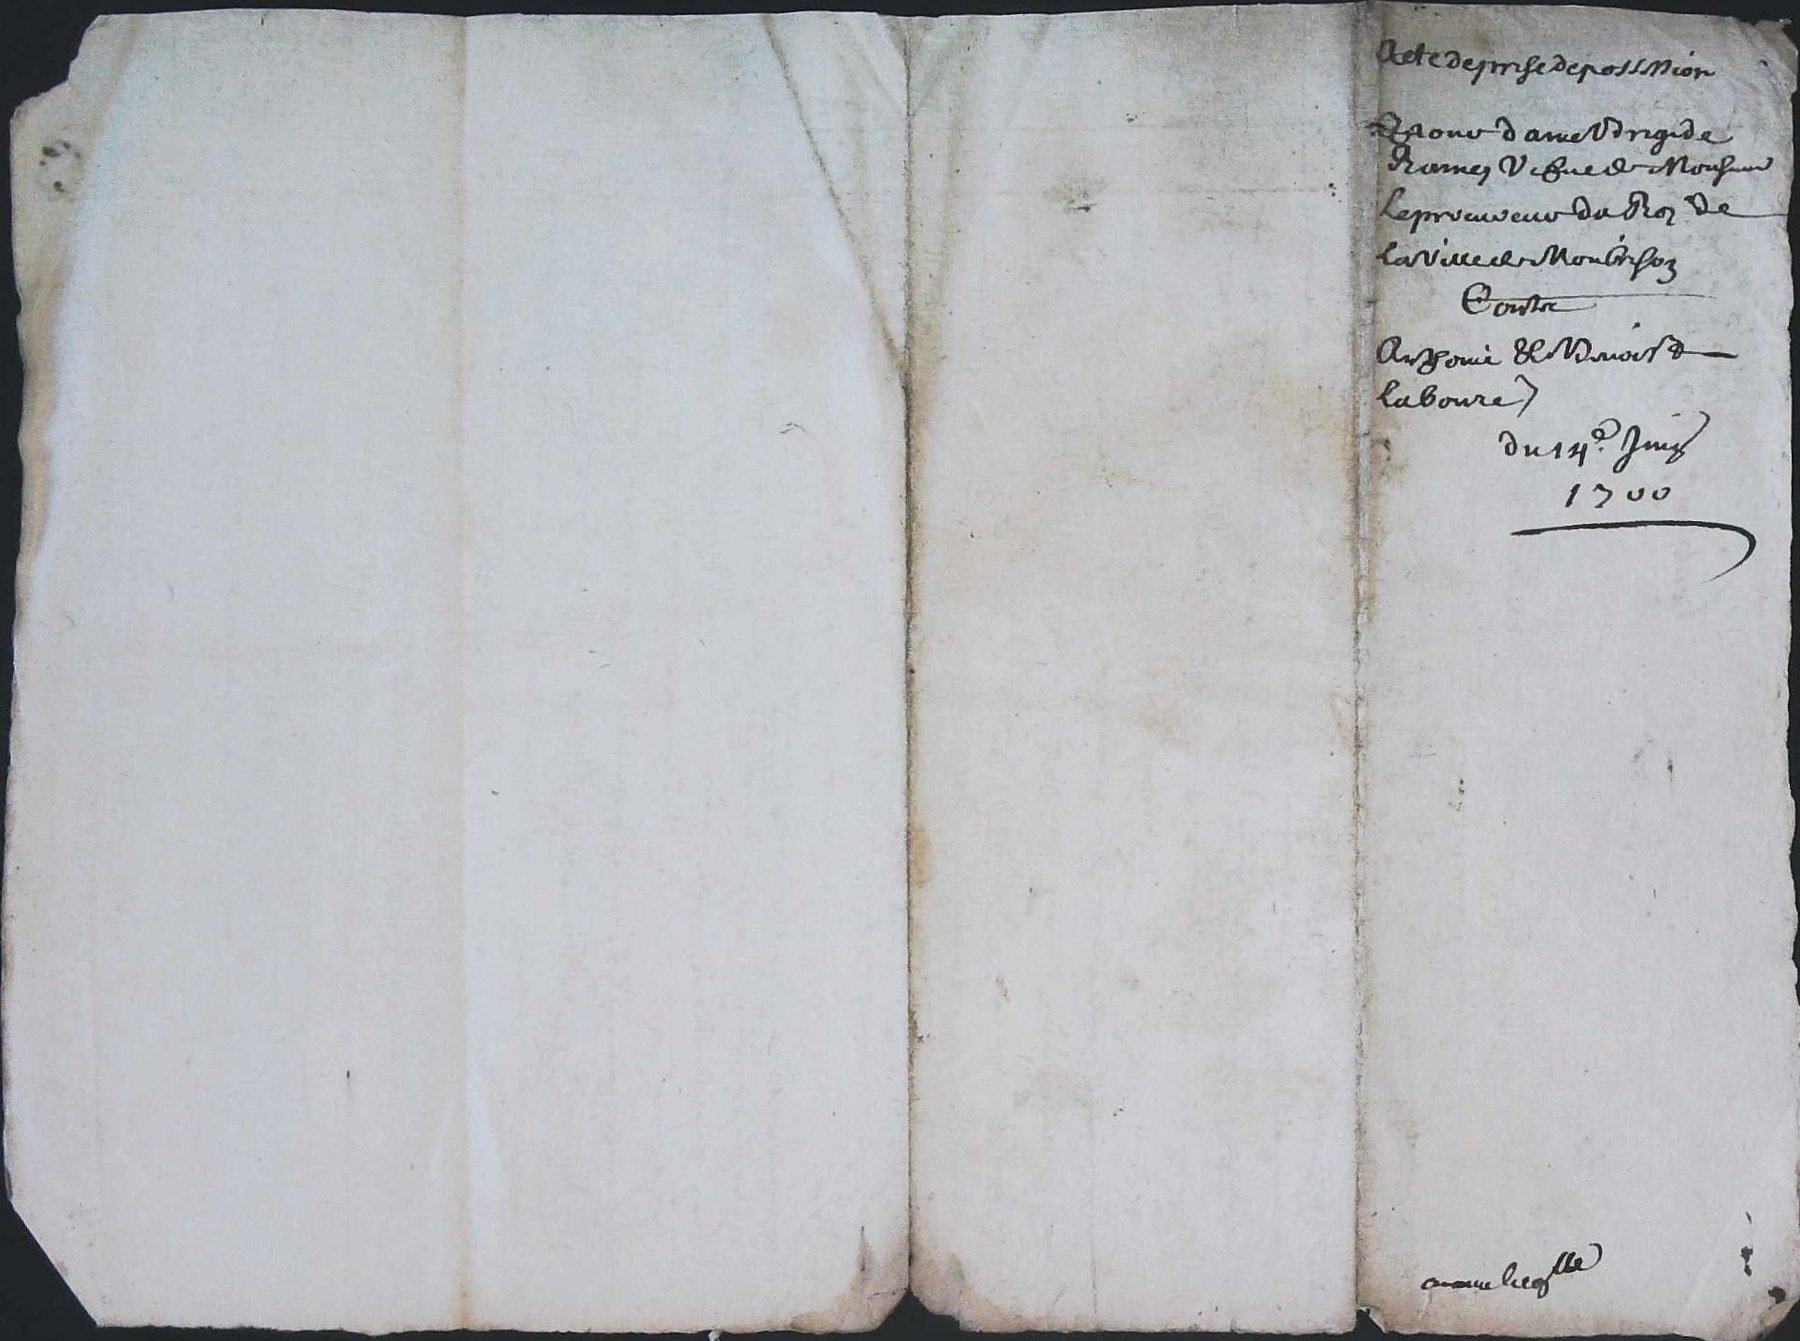 Acte de prise de possession
Pour dame Brigide
Ramey Vefue de Monsieur
Le procureur du Roy de
La Ville de Montbrison
Contre
Anthoine & Benoist
Laboure
du 14e Juin
1700